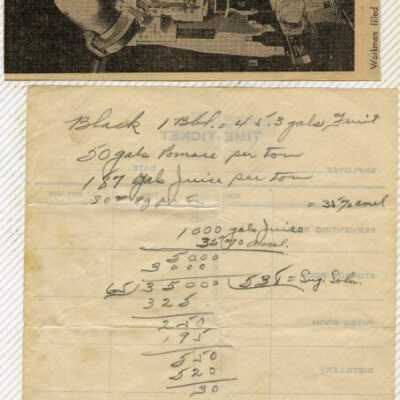 Workmen filled
Black 1 Bbl. = 45.3 gals, Fruit
TIME TICKET
50 gals Pomase per ton
EMPLOYEE DATE
187 gal Juice per ton
= 35% amel
1000 gals Juice
FERMENTING
35% amel.
5000
3000
65) 35000 (538 = Sug. Soln.
325
PRESS ROOM
250
195
550
DISTILLERY
520
30